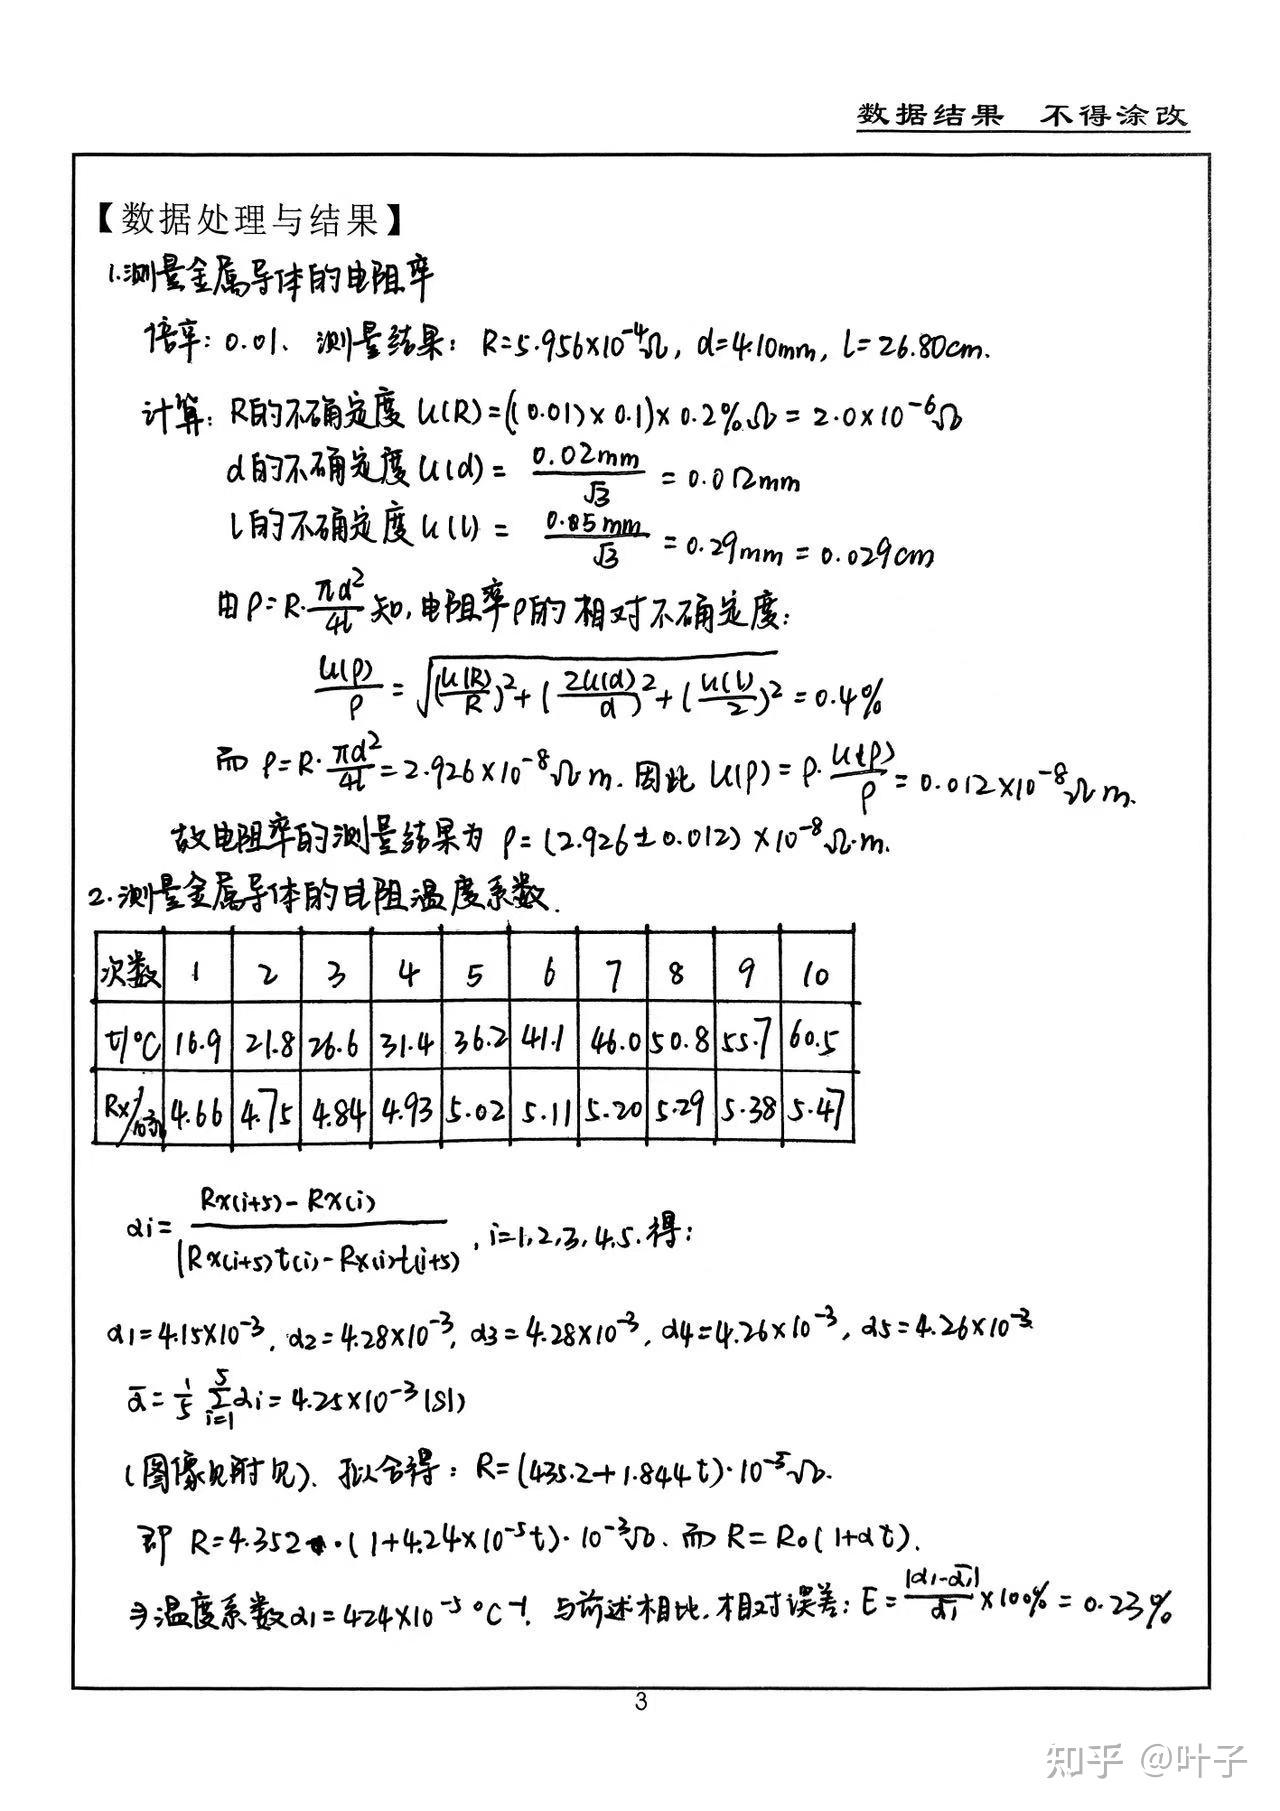 数据结果 不得涂改
【数据处理与结果】
1.测量金属导体的电阻率
倍率: 0.01. 测量结果: R=5.956×10⁻⁴Ω, d=4.10mm, l=26.80cm.
计算: R的不确定度 u(R)=((0.01)×0.1)×0.2%Ω=2.0×10⁻⁶Ω
d的不确定度 u(d)= 0.02mm/√3 = 0.012mm
l的不确定度 u(l)= 0.05mm/√3 = 0.29mm = 0.029cm
由 ρ=R·πd²/4l 知, 电阻率ρ的相对不确定度:
u(ρ)/ρ = √((u(R)/R)²+(2u(d)/d)²+(u(l)/2)²) = 0.4%
而 ρ=R·πd²/4l=2.926×10⁻⁸Ω·m. 因此 u(ρ)=ρ·u(ρ)/ρ=0.012×10⁻⁸Ω·m.
故电阻率的测量结果为 ρ=(2.926±0.012)×10⁻⁸Ω·m.
2.测量金属导体的电阻温度系数.
次数 1 2 3 4 5 6 7 8 9 10
t/°C 16.9 21.8 26.6 31.4 36.2 41.1 46.0 50.8 55.7 60.5
Rx/10⁻³Ω 4.66 4.75 4.84 4.93 5.02 5.11 5.20 5.29 5.38 5.47
αi= (Rx(i+5)-Rx(i))/(Rx(i+5)t(i)-Rx(i)t(i+5)), i=1,2,3,4,5. 得:
α1=4.15×10⁻³, α2=4.28×10⁻³, α3=4.28×10⁻³, α4=4.26×10⁻³, α5=4.26×10⁻³
ᾱ=1/5 Σ(i=1→5) αi=4.25×10⁻³(SI)
(图像见附见). 拟合得: R=(435.2+1.844t)·10⁻⁵Ω.
即 R=4.352·(1+4.24×10⁻⁵t)·10⁻³Ω. 而 R=R₀(1+αt).
⇒温度系数α1=424×10⁻⁵°C⁻¹. 与前述相比, 相对误差: E=|α1-ᾱ1|/ᾱ1×100%=0.23%
3
知乎 @叶子